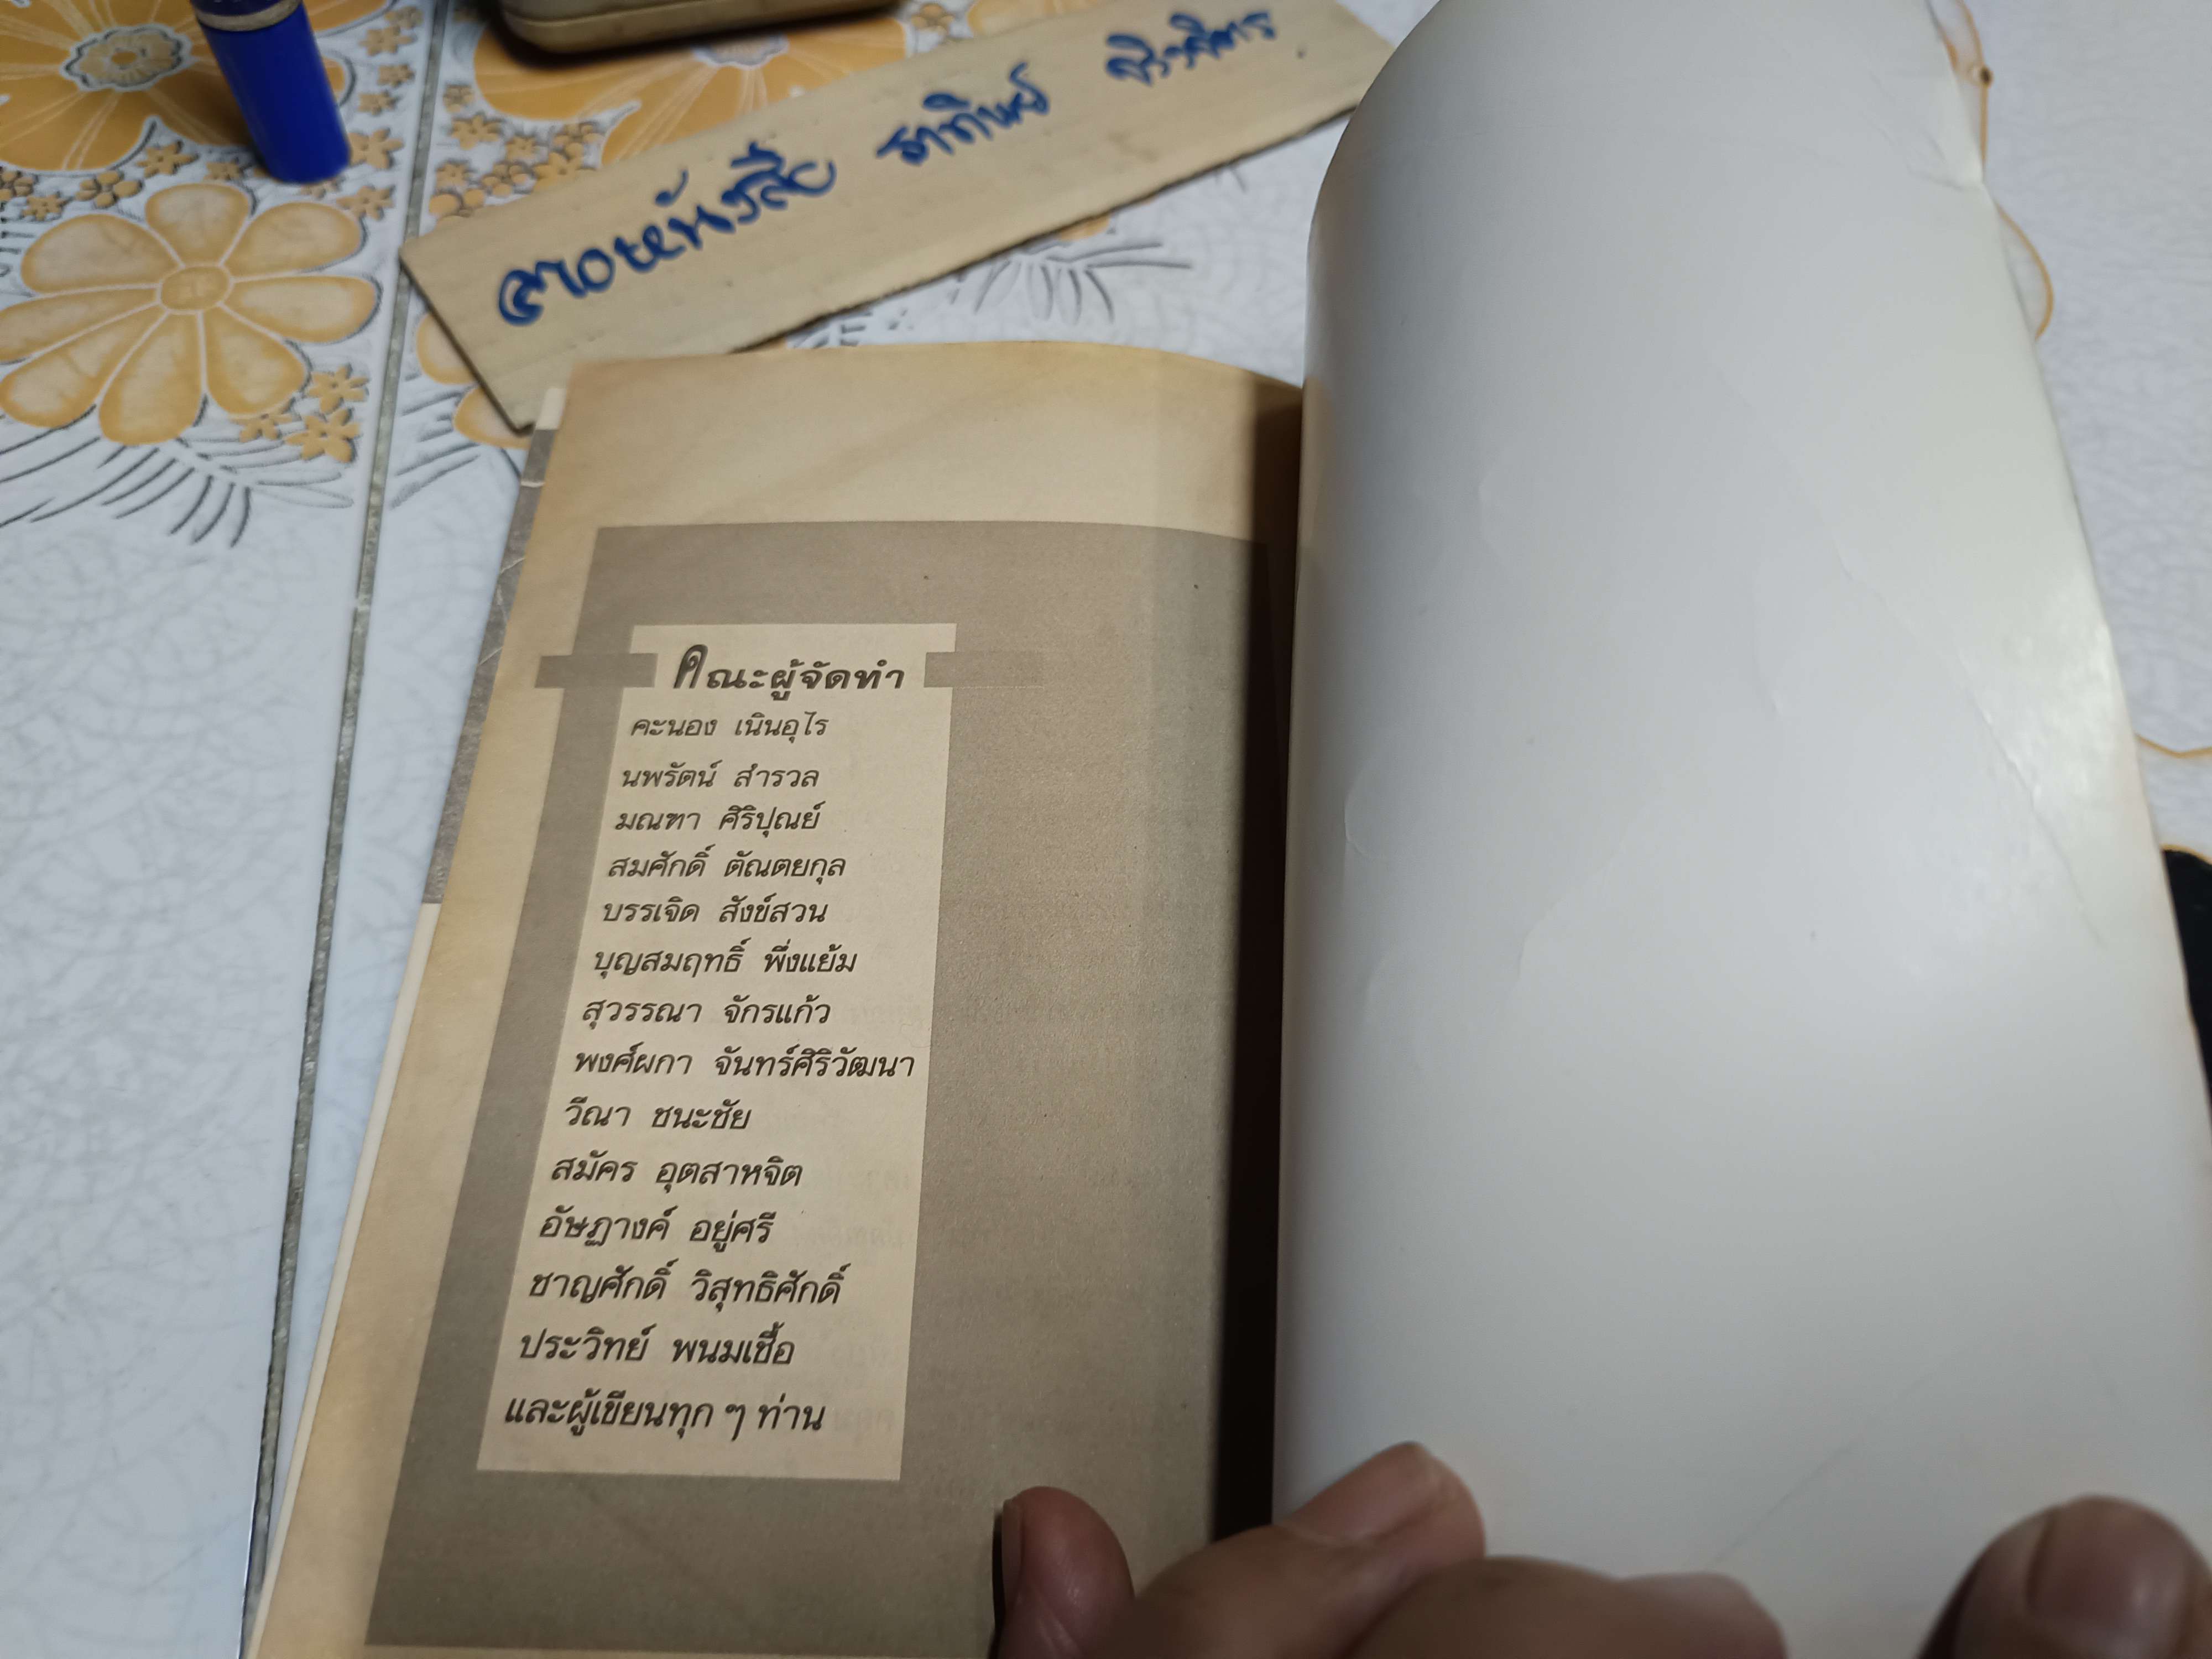 คณะผู้จัดทำ
คะนอง เนินอุไร
นพรัตน์ สำรวล
มณฑา ศิริปุณย์
สมศักดิ์ ตัณตยกุล
บรรเจิด สังข์สวน
บุญสมฤทธิ์ พึ่งแย้ม
สุวรรณา จักรแก้ว
พงศ์ผกา จันทร์ศิริวัฒนา
วีณา ชนะชัย
สมัคร อุตสาหจิต
อัษฏางค์ อยู่ศรี
ชาญศักดิ์ วิสุทธิศักดิ์
ประวิทย์ พนมเชื้อ
และผู้เขียนทุก ๆ ท่าน